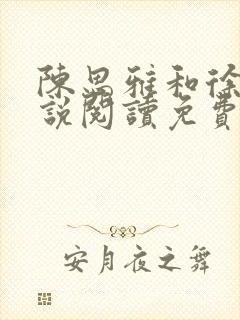 陳思雅和徐
說閱讀免費
安月夜之舞